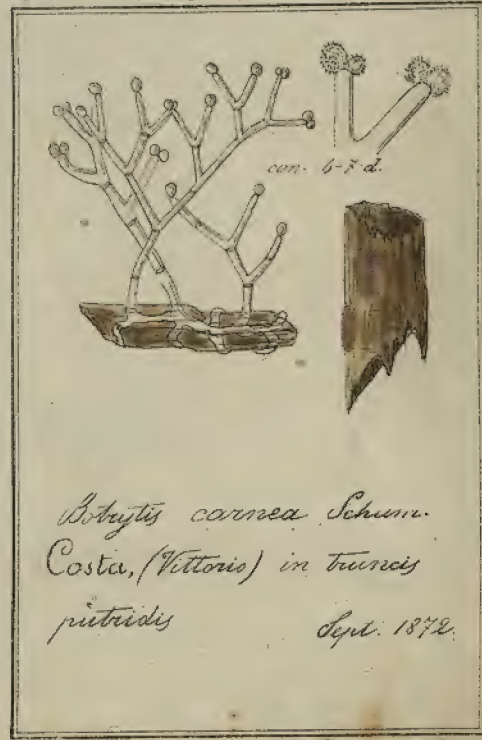 con. 6-7 d.
Botrytis carnea Schum.
Costa, (Vittorio) in truncis
putridis Sept. 1872.